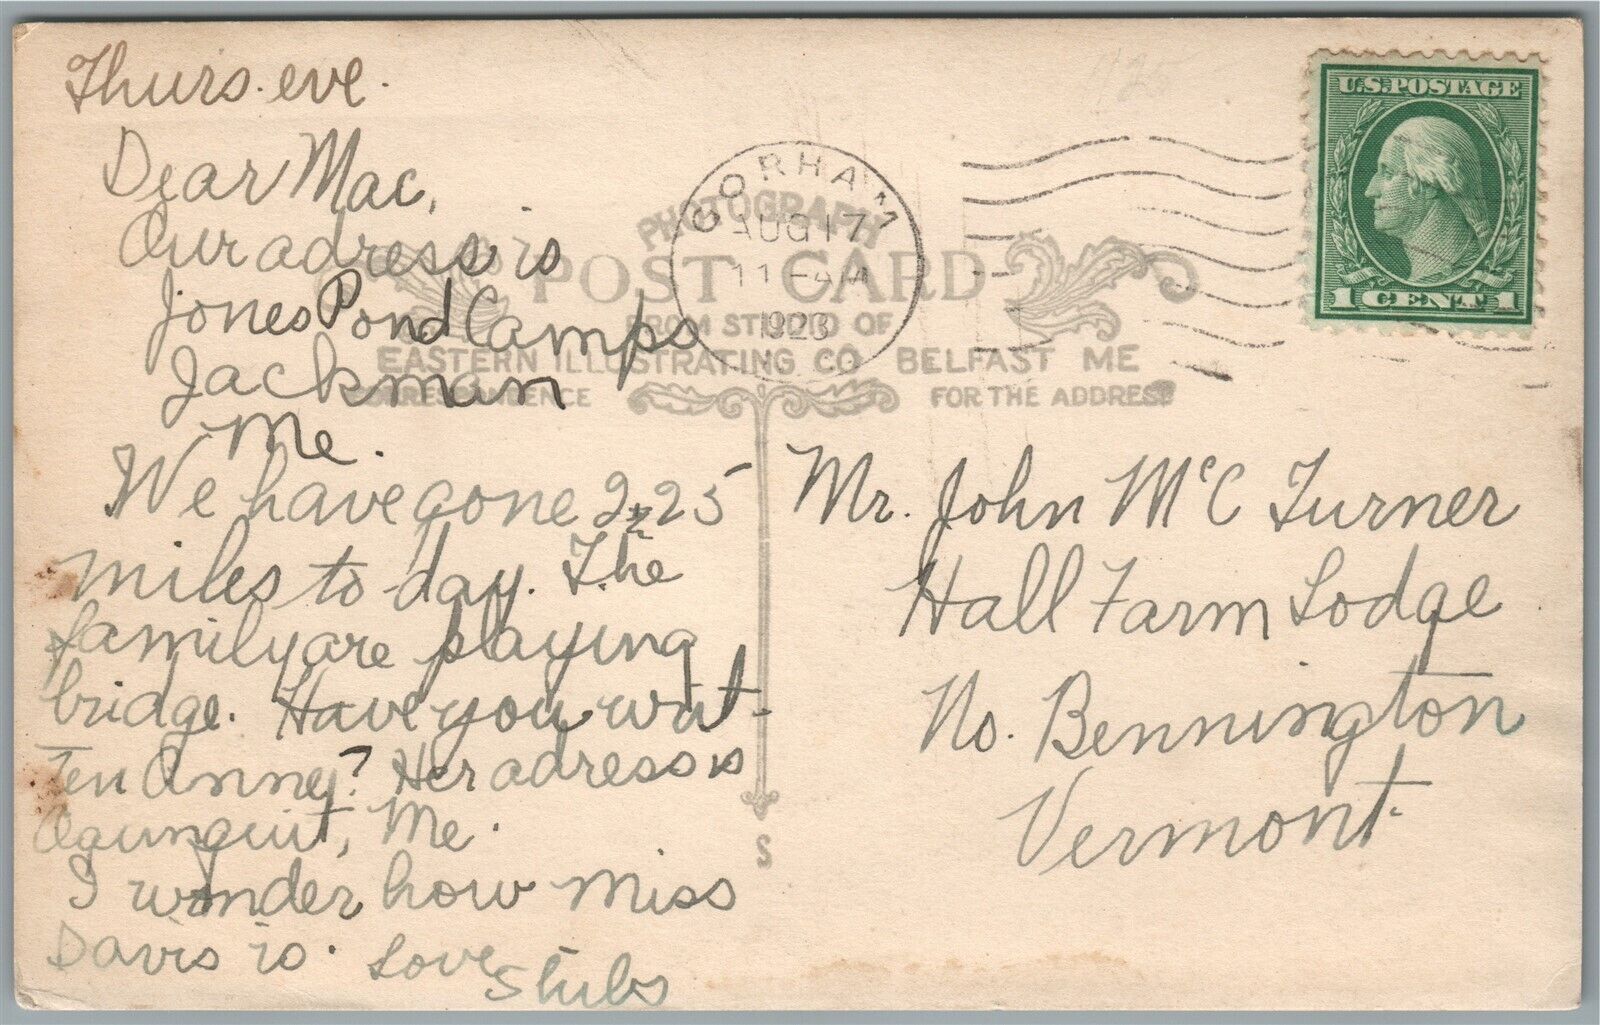 Thurs. eve.
Dear Mac,
Our adress is
Jones Pond Camps
Jackman
Me.
We have gone 225
miles to day. The
family are playing
bridge. Have you writ-
ten Anne? Her adress is
Ogunquit, Me.
I wonder how Miss
Davis is. Love,
Stubs
GORHAM
AUG 17
11-AM
1923
N.H.
PHOTOGRAPH
POST CARD
FROM STUDIO OF
EASTERN ILLUSTRATING CO BELFAST ME
CORRESPONDENCE
FOR THE ADDRESS
S
U.S. POSTAGE
1 CENT 1
Mr. John McC Turner
Hall Farm Lodge
No. Bennington
Vermont.